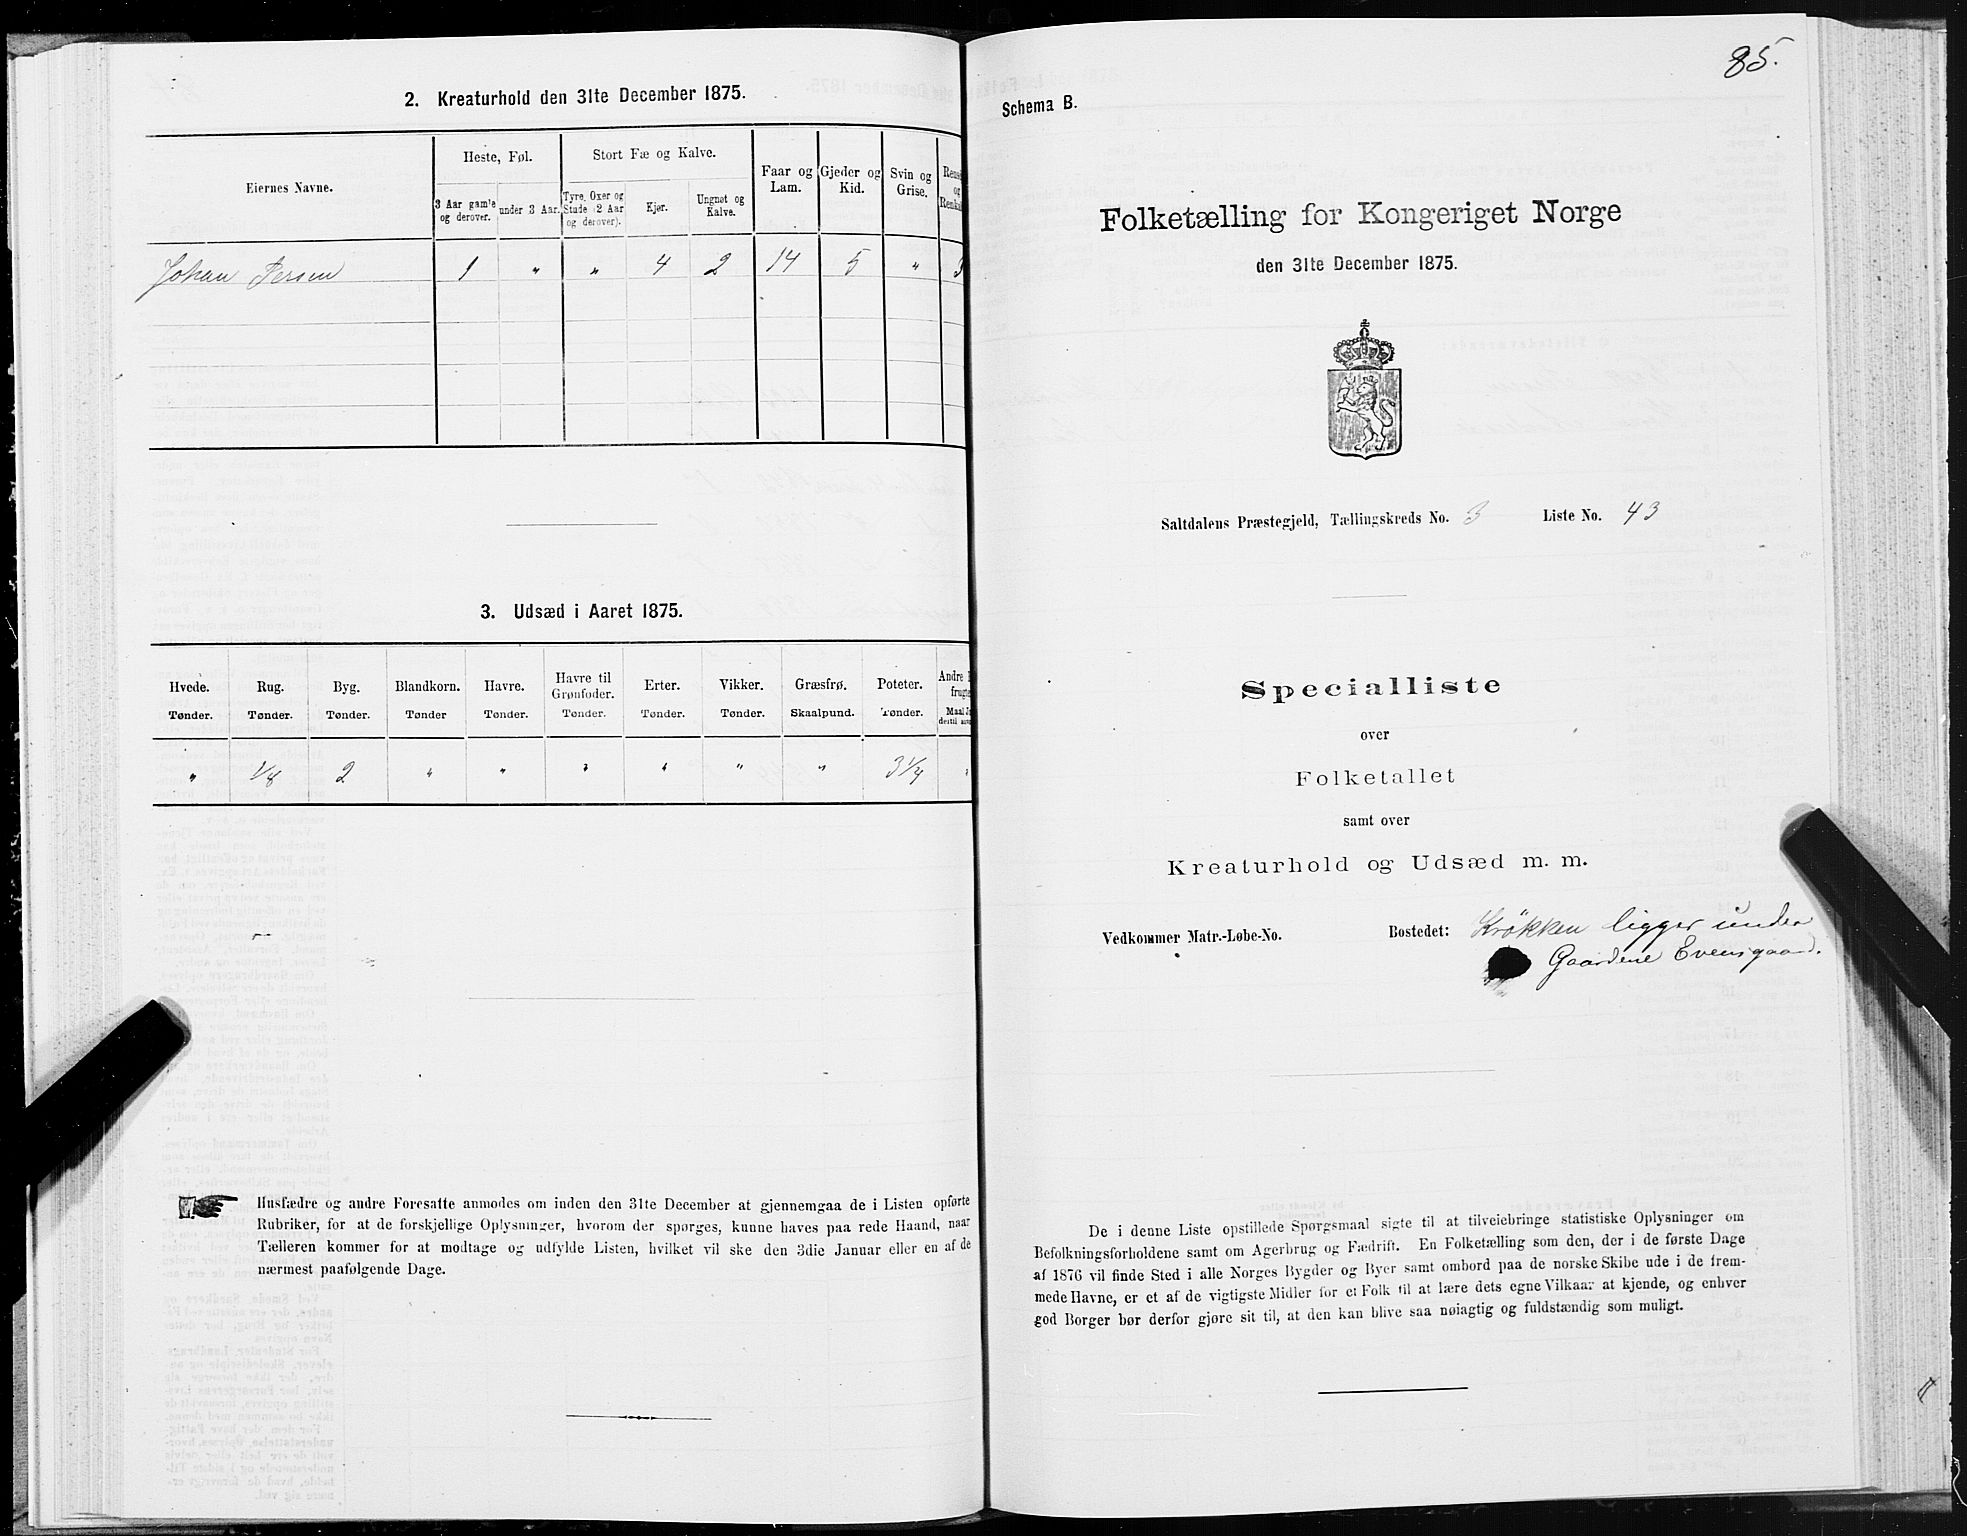 2. Kreaturhold den 31te December 1875.
Eiernes Navne.
Heste, Føl.
Stort Fæ og Kalve.
Faar og Lam.
Gjeder og Kid.
Svin og Grise.
3 Aar gamle og derover.
under 3 Aar.
Tyre, Oxer og Stude (2 Aar og derover).
Kjør.
Ungnøt og Kalve.
Johan Persen 1 " " 4 2 14 5 "
3. Udsæd i Aaret 1875.
Hvede. Rug. Byg. Blandkorn. Havre. Havre til Grønfoder. Erter. Vikker. Græsfrø. Poteter. Andre
Tønder. Tønder. Tønder. Tønder Tønder. Tønder. Tønder. Tønder. Skaalpund. Tønder.
" 1/8 2 " " " " " " 3 1/4 "
Husfædre og andre Foresatte anmodes om inden den 31te December at gjennemgaa de i Listen opførte
Rubriker, for at de forskjellige Oplysninger, hvorom der spørges, kunne haves paa rede Haand, naar
Tælleren kommer for at modtage og udfylde Listen, hvilket vil ske den 3die Januar eller en af de
nærmest paafølgende Dage.
85.
Schema B.
Folketælling for Kongeriget Norge
den 31te December 1875.
Saltdalens Præstegjeld, Tællingskreds No. 3 Liste No. 43
Specialliste
over
Folketallet
samt over
Kreaturhold og Udsæd m. m.
Vedkommer Matr.-Løbe-No. Bostedet: Krökken ligger under
Gaardene Evensgaard.
De i denne Liste opstillede Spørgsmaal sigte til at tilveiebringe statistiske Oplysninger om
Befolkningsforholdene samt om Agerbrug og Fædrift. En Folketælling som den, der i de første Dage
af 1876 vil finde Sted i alle Norges Bygder og Byer samt ombord paa de norske Skibe ude i de frem-
mede Havne, er et af de vigtigste Midler for et Folk til at lære dets egne Vilkaar at kjende, og enhver
god Borger bør derfor gjøre sit til, at den kan blive saa nøiagtig og fuldstændig som muligt.